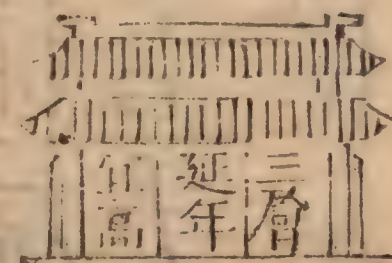 三層
延年
高